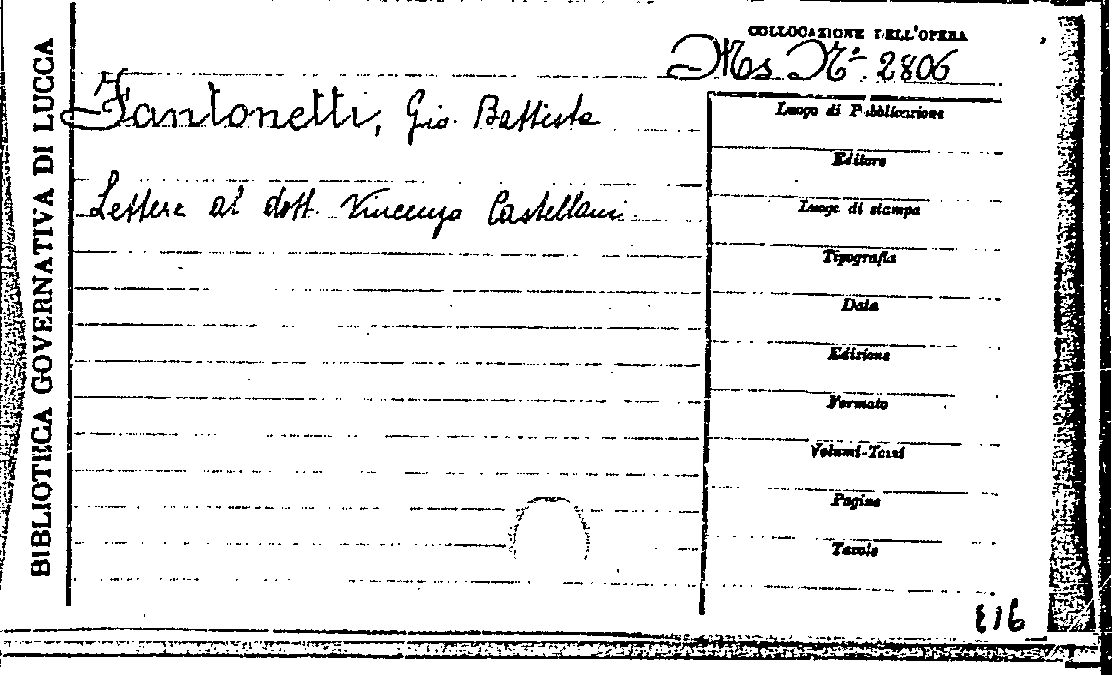 BIBLIOTECA GOVERNATIVA DI LUCCA
COLLOCAZIONE DELL'OPERA
Ms. Nº 2806
Fantonetti, Gio. Battista
Lettera al dott. Vincenzo Castellani
Luogo di Pubblicazione
Editore
Luogo di stampa
Tipografia
Data
Edizione
Formato
Volumi-Tomi
Pagine
Tavole